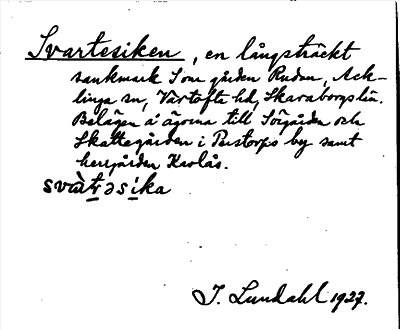 Svartesiken, en långsträckt
sankmark S om gården Rudan, Ack-
linga sn, Vartofta hd, Skaraborgs län.
Belägen å ägorna till Sörgården och
Skattegården i Perstorps by samt
herrgården Karlås.
svàtrəsika
J. Lundahl 1927.